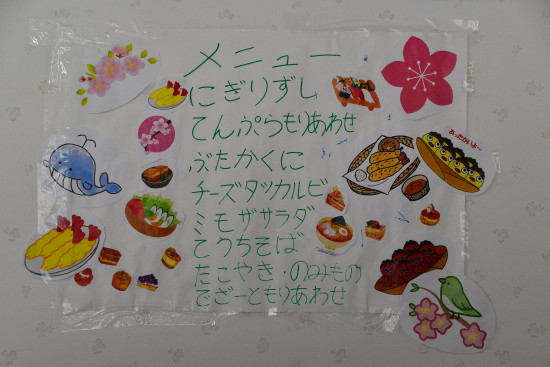 メニュー
にぎりずし
てんぷらもりあわせ
ぶたかくに
チーズタツカルビ
ミモザサラダ
てうちそば
たこやき・のみもの
でざーともりあわせ
あったかいよ～